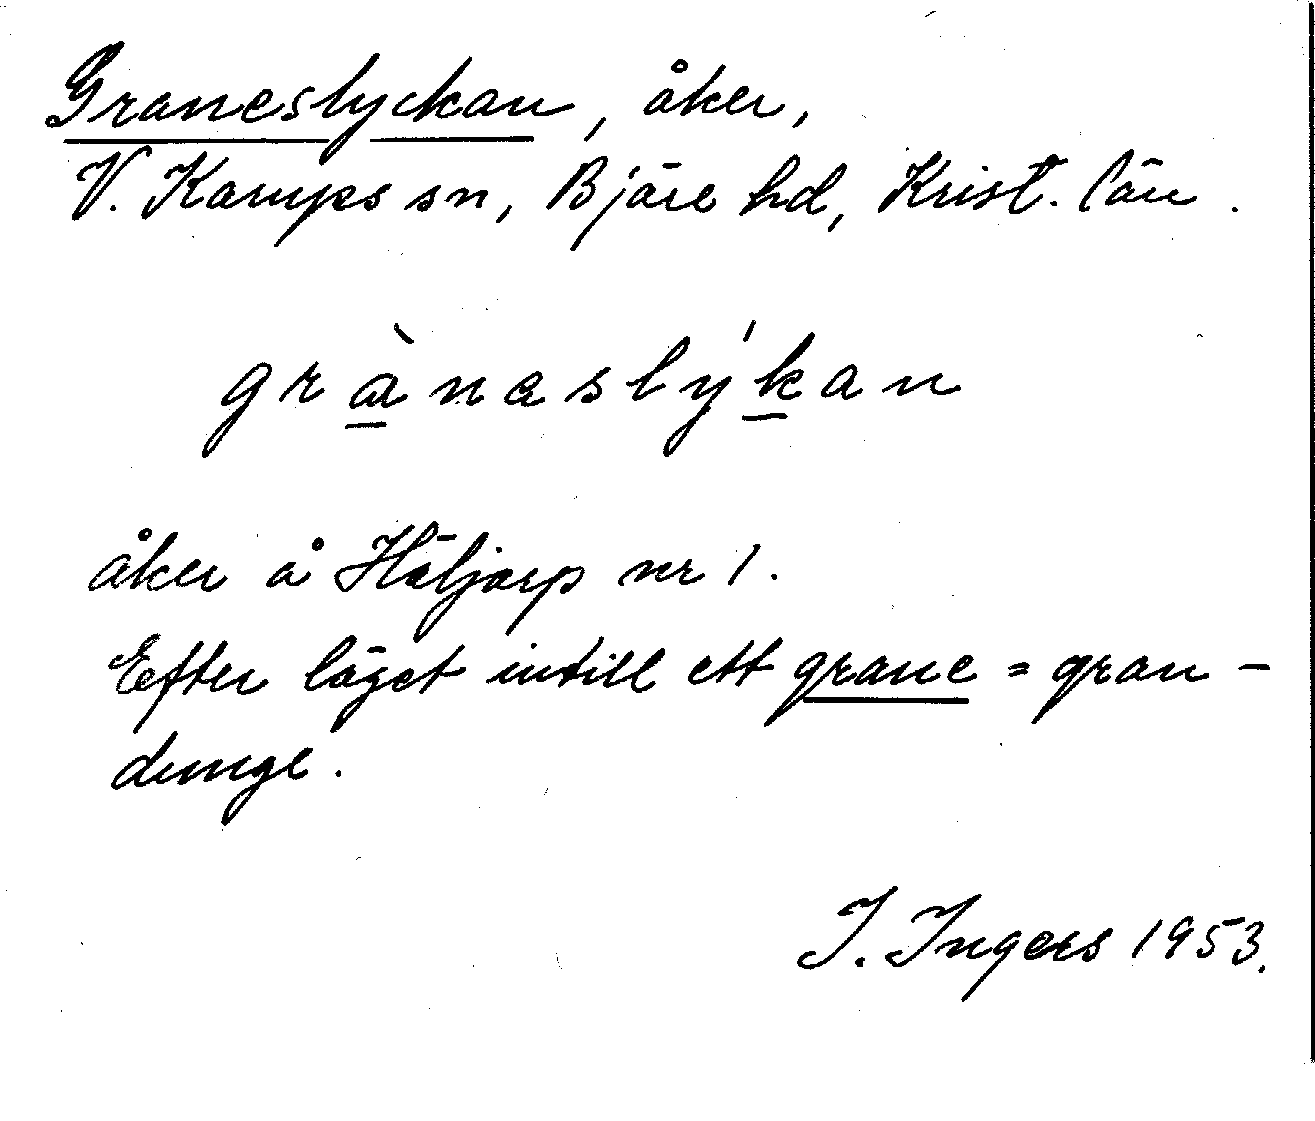 Graneslyckan, åker,
V. Karups sn, Bjäre hd, Krist. län.
grànaslýkan
åker å Häljarp nr 1.
Efter läget intill ett grane = gran-
dunge.
I. Ingers 1953.